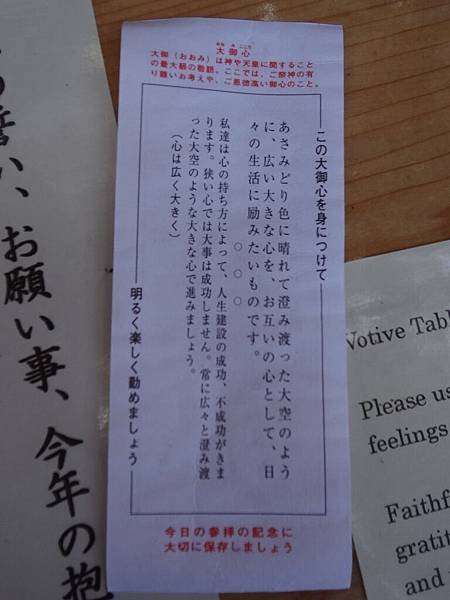 の誓い、お願い事、今年の抱
おお み こころ
大御心
大御(おおみ)は神や天皇に関すること
の最大級の敬語。ここでは、ご祭神の有
り難いお考えや、ご恩徳高い御心のこと。
この大御心を身につけて
あさみどり色に晴れて澄み渡った大空のよう
に、広い大きな心を、お互いの心として、日
々の生活に励みたいものです。
○ ○ ○
私達は心の持ち方によって、人生建設の成功、不成功がきま
ります。狭い心では大事は成功しません。常に広々と澄み渡
った大空のような大きな心で進みましょう。
(心は広く大きく)
明るく楽しく勤めましょう
今日の参拝の記念に
大切に保存しましょう
Votive Tabl
Please us
feelings
Faithf
gratit
and